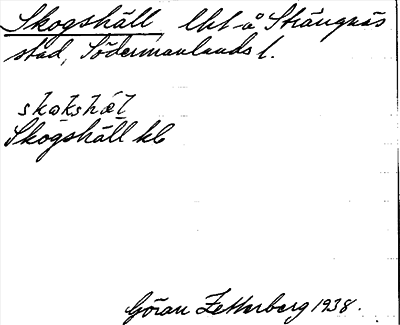 Skogshäll lht å Strängnäs
stad, Södermanlands l.
skɷkshæ̀l
Skogshäll kb
Göran Zetterberg 1938.